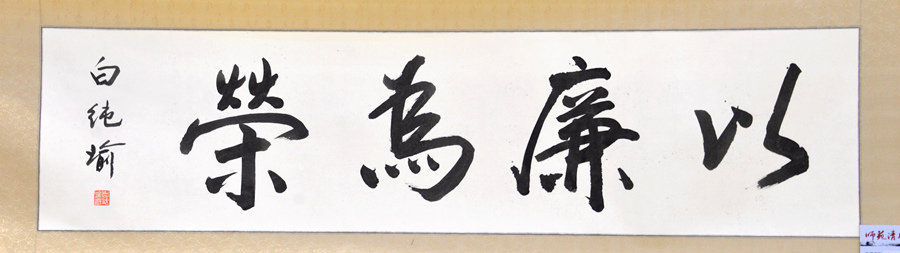 以廉為榮
白純瑜
师苑清